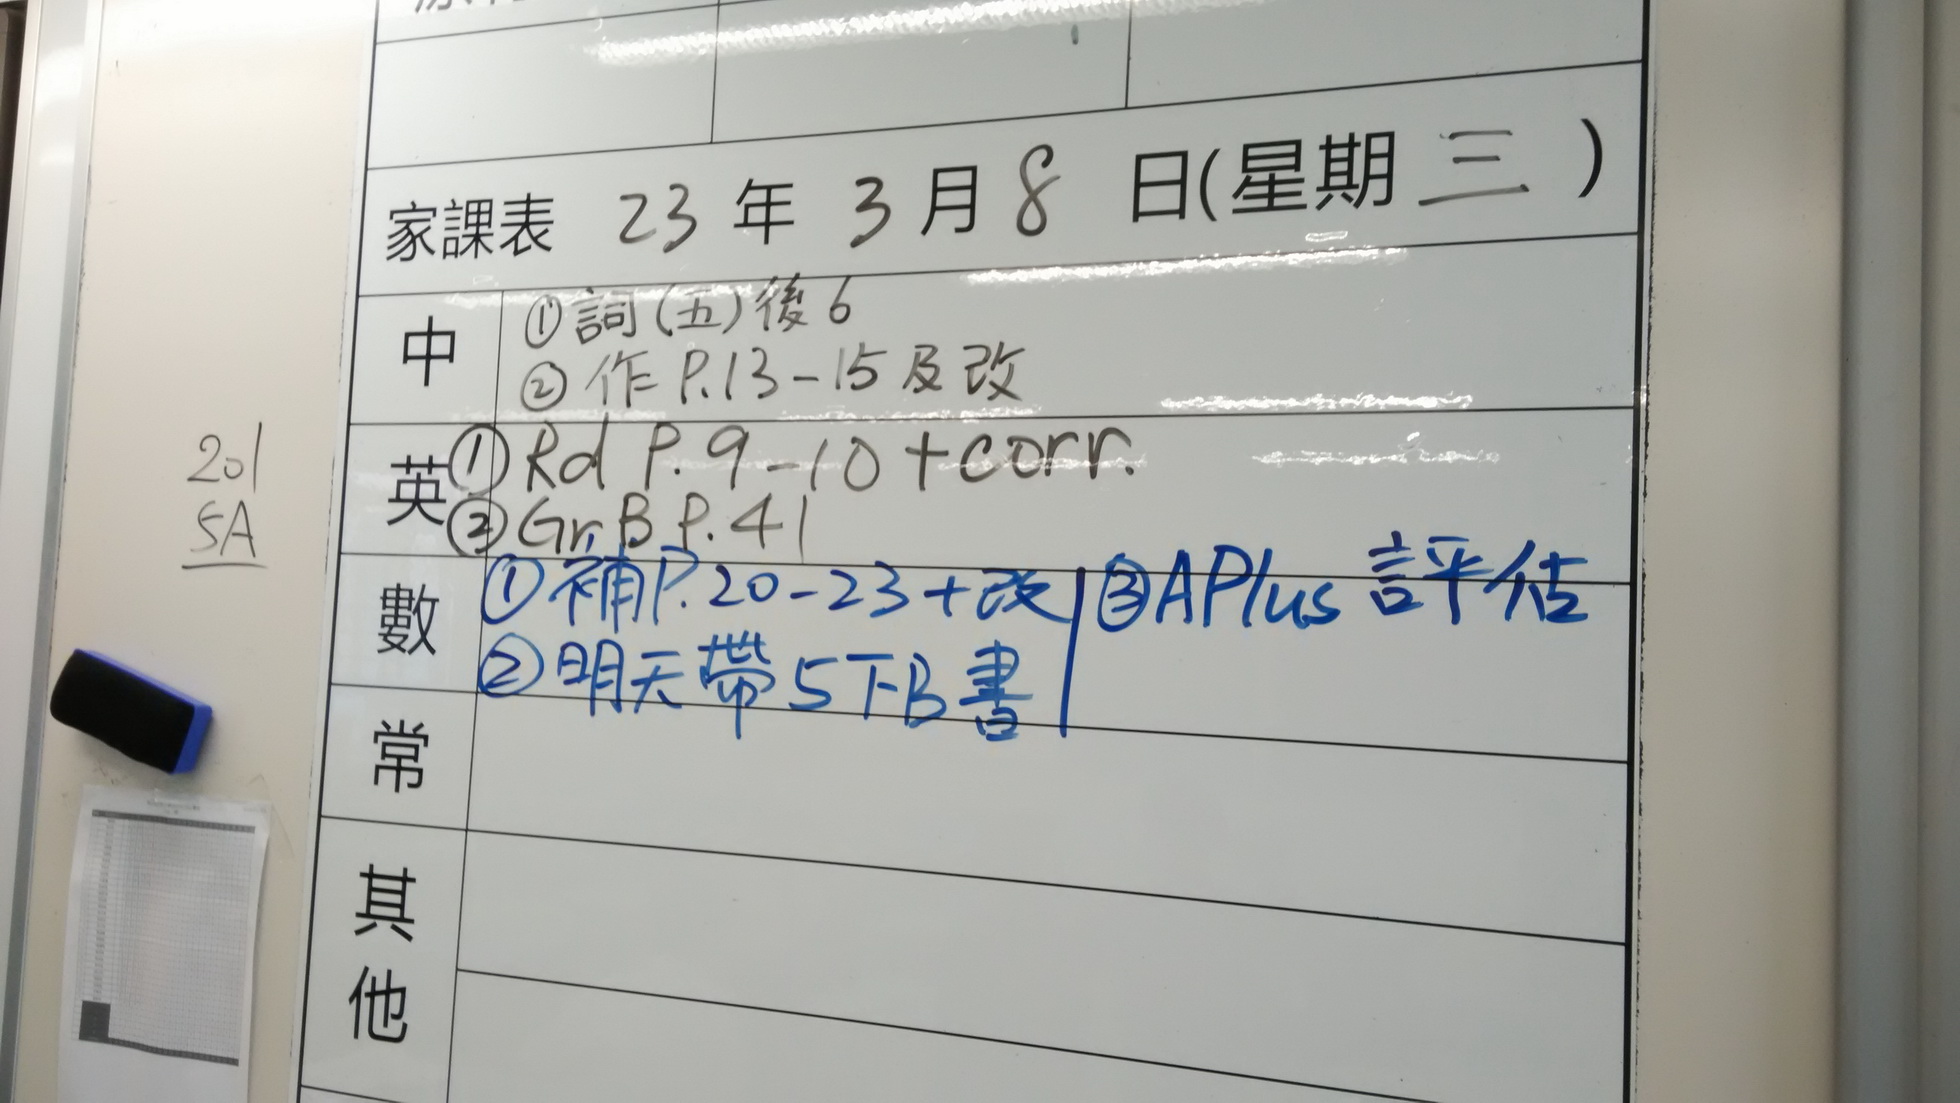 家課表 23年 3月 8日(星期三)
中
①詞(五)後6
②作P.13-15及改
英
①Rd P.9-10+corr.
②Gr.B P.41
數
①補P.20-23+改 ③APlus 評估
②明天帶5下B書
常
其他
201
5A